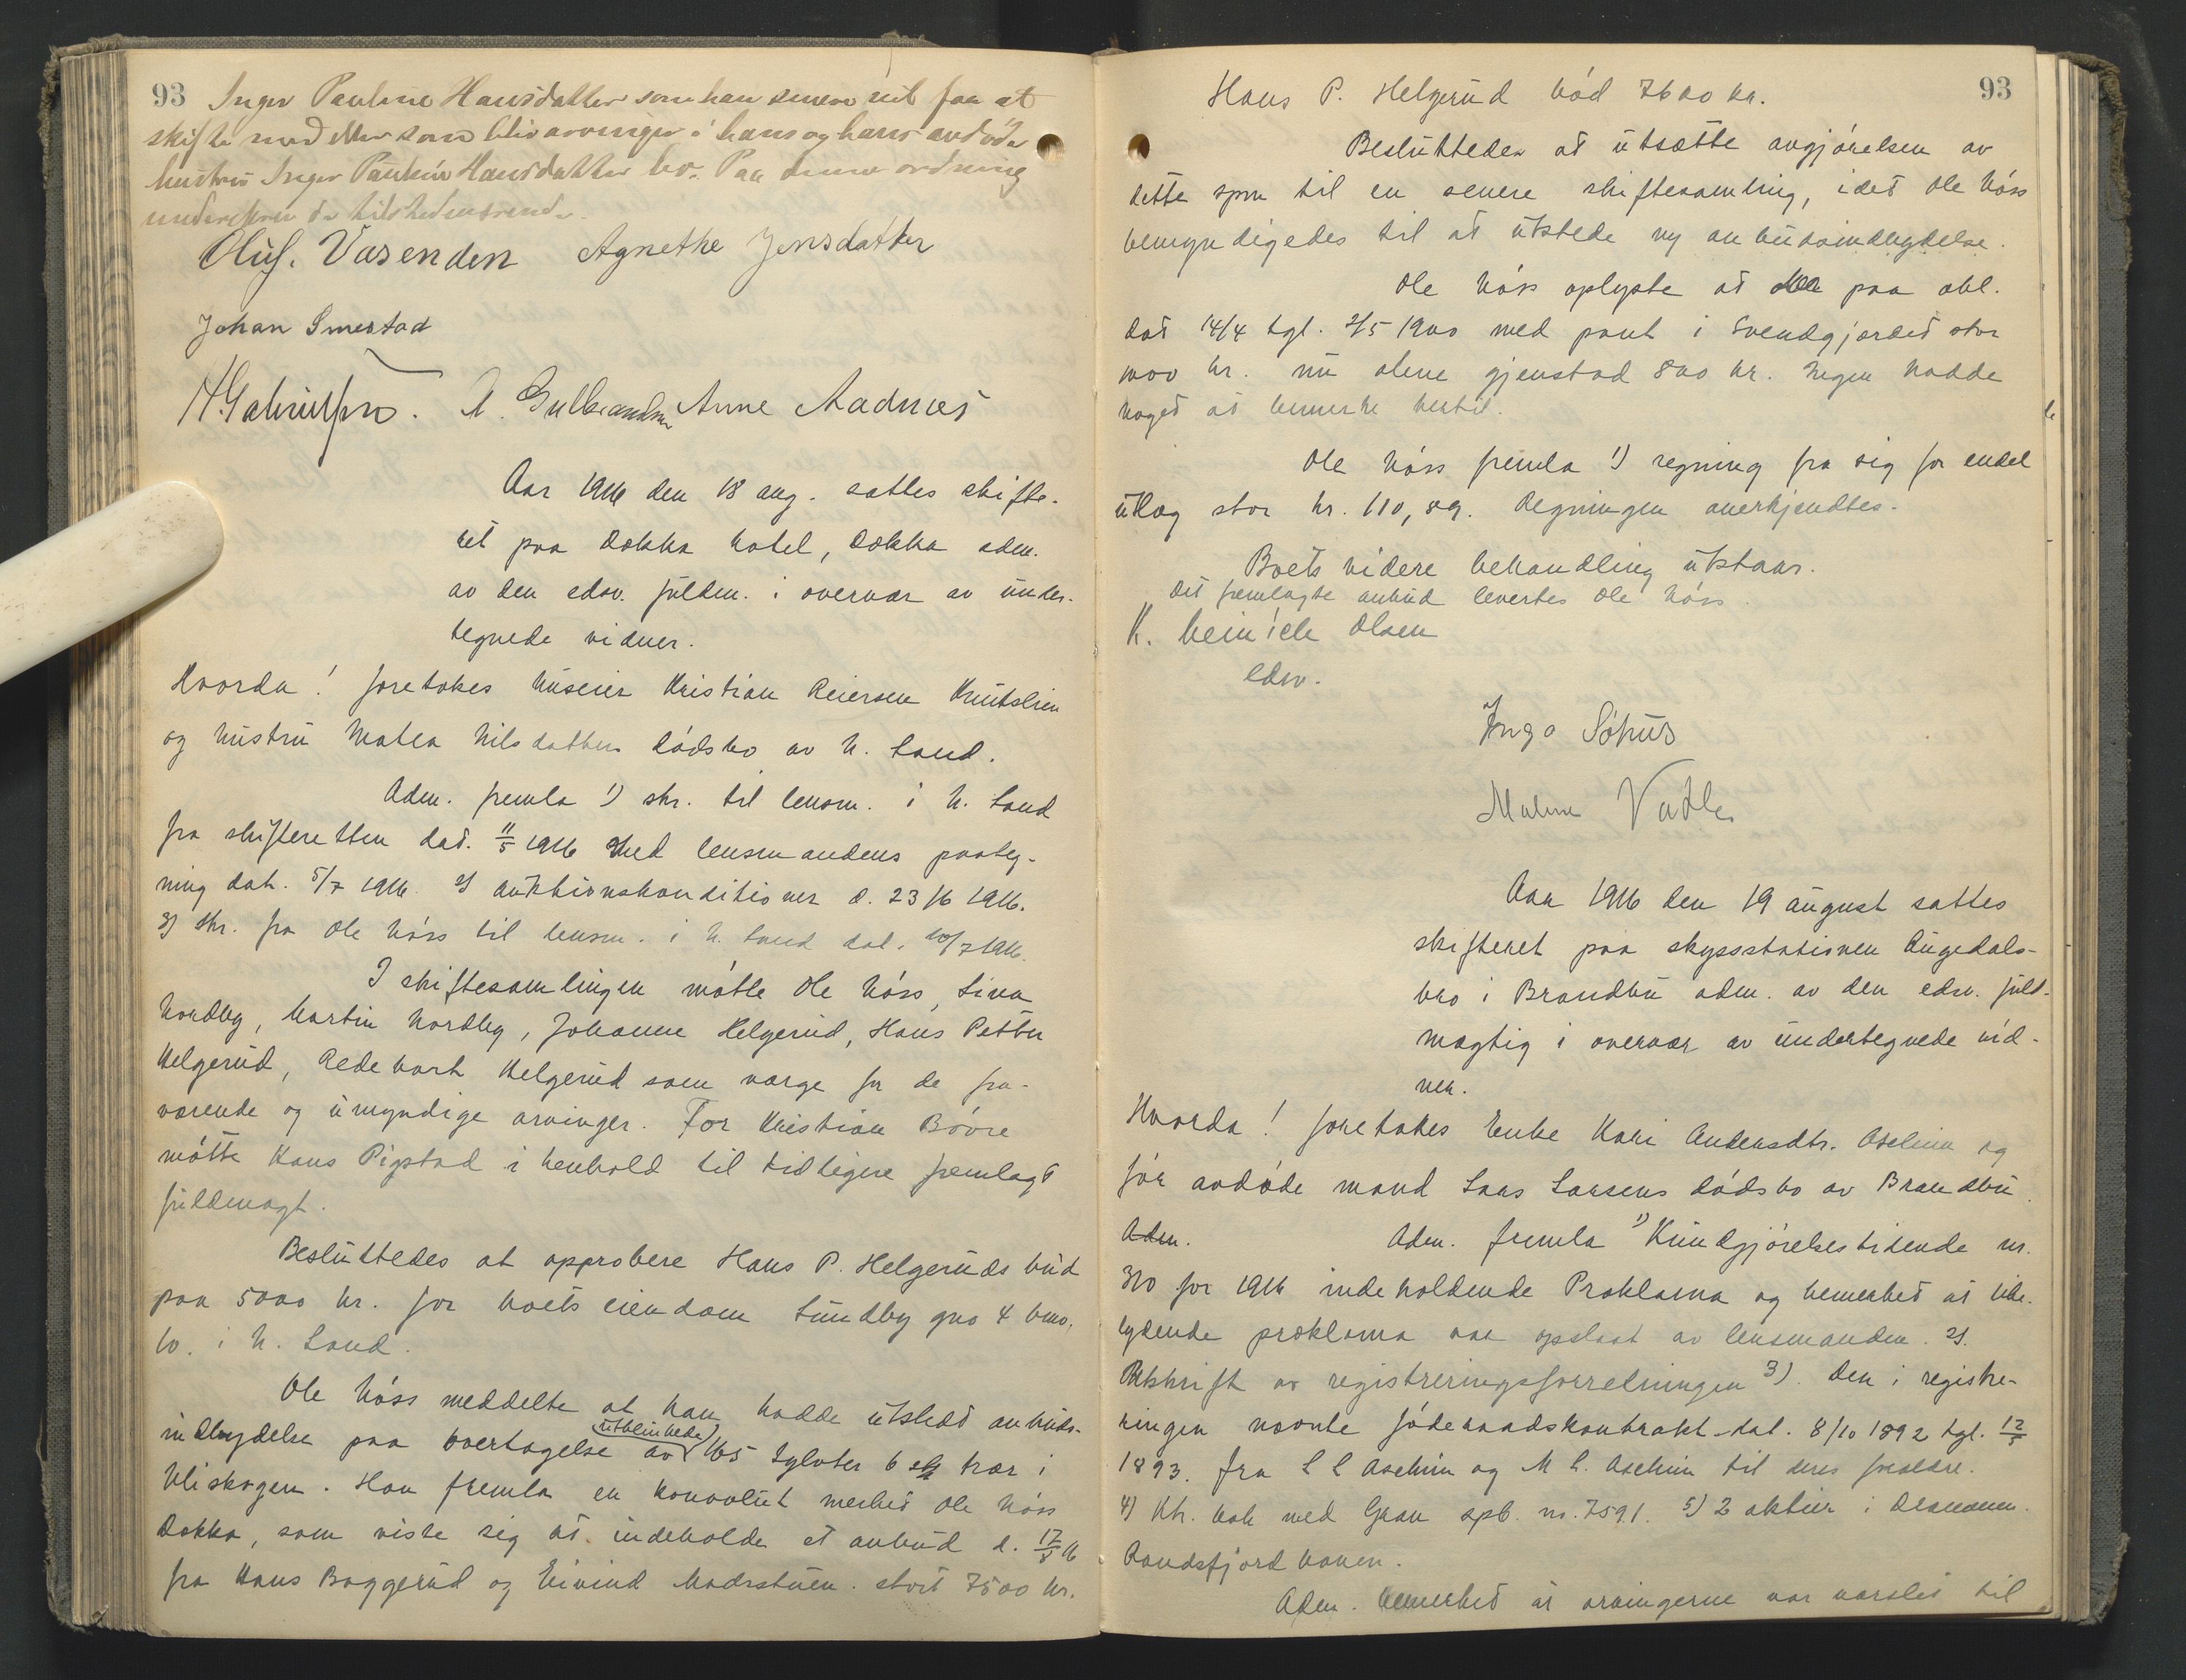 93 Inger Pauline Hansdatter som han senere vil faa at
skifte med eller som blir arvinger i hans og hans avdöde
hustru Inger Pauline Hansdatter bo. Paa denne ordning
underskrev de tilstedeværende.
Oluf. Vasenden Agnethe Jensdatter
Johan Smestad
A. Gulbrandsen Anne Aadnæs
Aar 1916 den 18 aug. sattes skifte-
ret paa Dokka hotel, Dokka adm.
av den edsv. fuldm. i overvær av under-
tegnede vidner.
Hvorda! foretokes huseier Kristian Reiersen Knutslien
og hustru Matea Nilsdatters dödsbo av N. Land.
Adm. fremla 1) skr. til lensm. i N. Land
fra skifteretten dat. 11/5 1916 med lensmandens paateg-
ning dat. 5/7 1916. 2) auktionskonditioner d. 23/6 1916.
3) skr. fra Ole Höss til lensm. i N. Land dat. 10/7 1916.
I skiftesamlingen mötte Ole Höss, Lina
Nordby, Martin Nordby, Johanne Helgerud, Hans Petter
Helgerud, Redevart Helgerud som værge for de fra-
værende og umyndige arvinger. For Kristian Bövre
mötte Hans Pigstad i henhold til tidligere fremlagt
fuldmagt.
Besluttedes at approbere Hans P. Helgeruds bud
paa 5000 kr. for boets eiendom Lundby gno 4 bno.
10. i N. Land.
Ole Höss meddelte at han hadde utstedt anbuds-
indbydelse paa overtagelse av (utblinkede) 165 tylvter 6 trær i
Uliskogen. Han fremla en konvolut merket Ole Höss
Dokka, som viste sig at indeholde et anbud d. 17/8 16
fra Hans Baggerud og Eivind Madsstuen. stort 7500 kr.
Hans P. Helgerud böd 7600 kr. 93
Besluttedes at utsætte avgjörelsen av
dette spm til en senere skiftesamling, idet Ole Höss
bemyndigedes til at utstede ny anbudsindbydelse.
Ole Höss oplyste at der paa obl.
dat 14/4 tgl. 2/5 1900 med pant i Svendgjerdet stor
1000 kr. nu alene gjenstod 800 kr. Ingen hadde
noget at bemerke hertil.
Ole Höss fremla 1) regning fra sig for endel
utlæg stor kr. 110,89. Regningen anerkjendtes.
Boets videre behandling utstaar.
Det fremlagte anbud levertes Ole Höss.
K. Meinich Olsen
edsv.
Inga Sötrus
Aar 1916 den 19 august sattes
skifteret paa skysstationen Augedals-
bro i Brandbu adm. av den edsv. fuld-
mægtig i overvær av undertegnede vid-
ner.
Hvorda! foretokes Enke Kari Andersdtr. Aschim og
för avdöde mand Lars Larsens dödsbo av Brandbu.
Adm. Adm. fremla 1) Kundgjörelsestidende nr.
310 for 1916 indeholdende Proklama og bemerket at like-
lydende proklama var opslaat av lensmanden. 2)
Utskrift av registreringsforretningen 3). Den i registre-
ringen nævnte föderaadskontrakt dat. 8/10 1892 tgl. 12/5
1893. fra L L Aschim og M L. Aschim til deres forældre.
4) Ktr. bok med Gran spb. nr. 7591. 5) 2 aktier i Drammen
Randsfjordbanen.
Adm. bemerket at arvingerne var varslet til